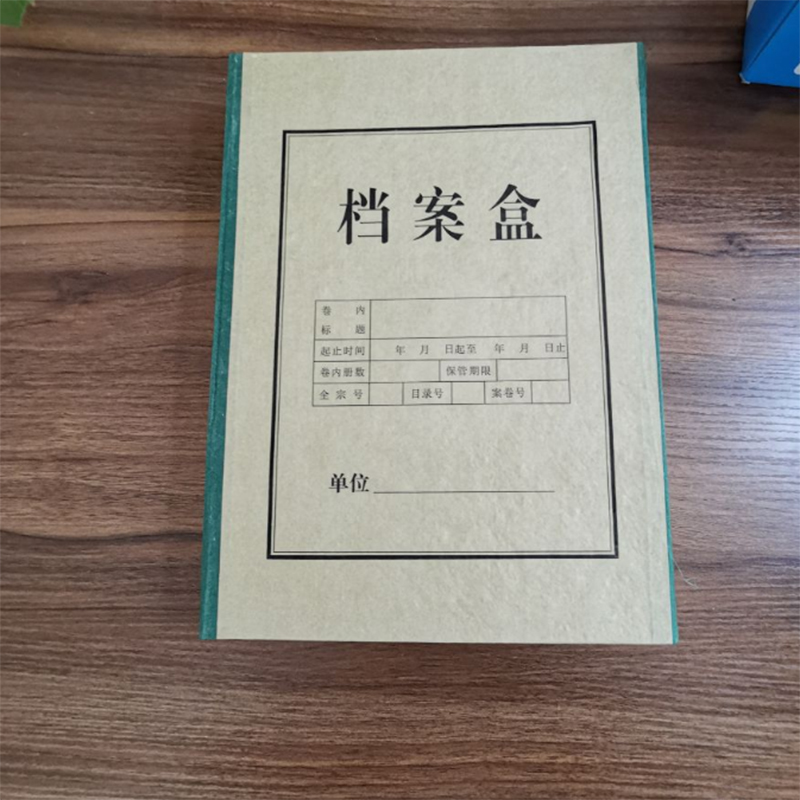 档案盒
卷内
标题
起止时间 年 月 日起至 年 月 日止
卷内册数 保管期限
全宗号 目录号 案卷号
单位